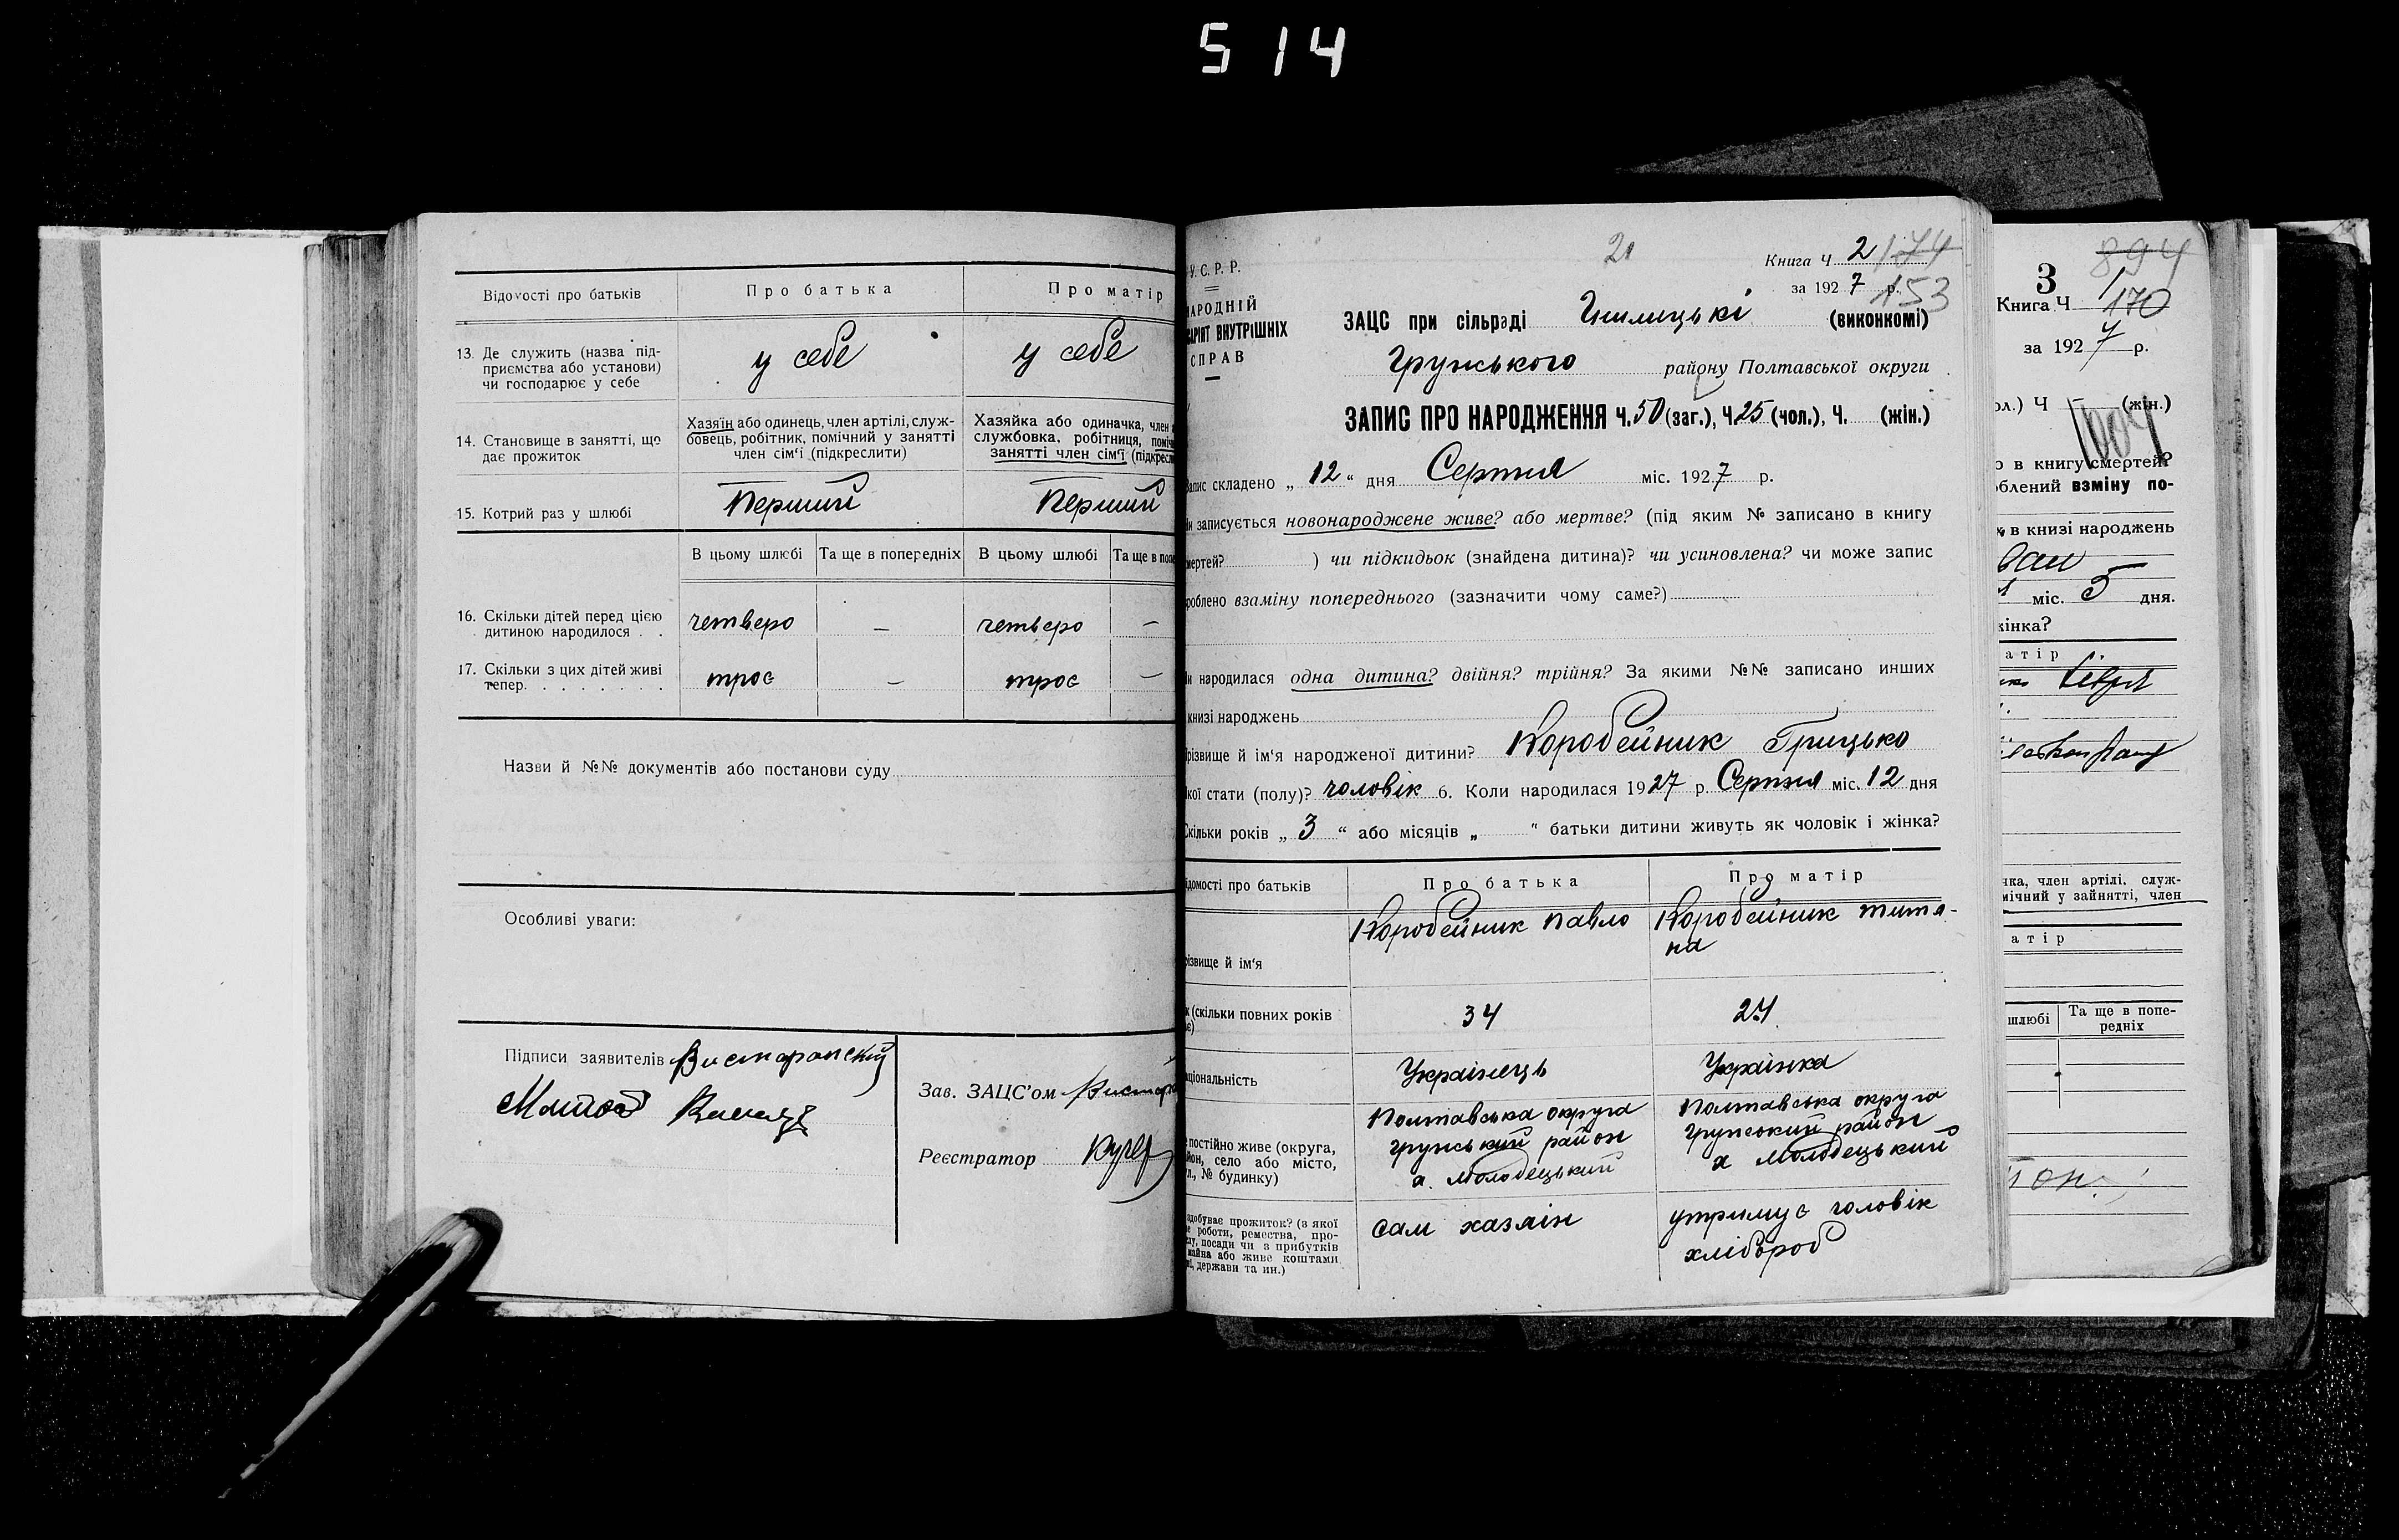 514
Відомості про батьків
Про батька
Про матір
13. Де служить (назва під-
приємства або установи)
чи господарює у себе
у себе
у себе
14. Становище в занятті, що
дає прожиток
Хазяїн або одинець, член артілі, служ-
бовець, робітник, помічний у занятті
член сім‘ї (підкреслити)
Хазяйка або одиначка, член
службовка, робітниця, поміч
занятті член сім‘ї (підкресл
15. Котрий раз у шлюбі
Перший
Перший
В цьому шлюбі
Та ще в попередніх
В цьому шлюбі
Та ще в попе
16. Скільки дітей перед цією
дитиною народилося . .
четверо
—
четверо
—
17. Скільки з цих дітей живі
тепер. . . . . . . .
троє
—
троє
—
Назви й №№ документів або постанови суду
Особливі уваги:
Підписи заявителів
Зав. ЗАЦС’ом
Реєстратор
У.С.Р.Р.
НАРОДНІЙ
АРІЯТ ВНУТРІШНІХ
СПРАВ
21
Книга Ч 2 174
за 1927 р. 153
ЗАЦС при сільраді (виконкомі)
Грунського району Полтавської округи
ЗАПИС ПРО НАРОДЖЕННЯ Ч. 50 (заг.), Ч. 25 (чол.), Ч. (жін.)
Запис складено „ 12 “ дня Серпня міс. 1927 р.
и записується новонароджене живе? або мертве? (під яким № записано в книгу
мертей? ) чи підкидьок (знайдена дитина)? чи усиновлена? чи може запис
роблено взаміну попереднього (зазначити чому саме?)
и народилася одна дитина? двійня? трійня? За якими №№ записано инших
книзі народжень
різвище й ім‘я народженої дитини? Коробейник Грицько
кої стати (полу)? чоловік 6. Коли народилася 1927 р. Серпня міс. 12 дня
Скільки років „ 3 “ або місяців „ “ батьки дитини живуть як чоловік і жінка?
ідомості про батьків
Про батька
Про матір
різвище й ім‘я
Коробейник Павло
Коробейник Титя-
на
к (скільки повних років
є)
34
27
аціональність
Українець
Українка
постійно живе (округа,
йон, село або місто,
л., № будинку)
Полтавська округа
грунський район
х. Молодецький
Полтавська округа
грунський район
х Молодецький
здобуває прожиток? (з якої
е роботи, ремества, про-
ду, посади чи з прибутків
майна або живе коштами
ні, держави та ин.)
сам хазяїн
утримує чоловік
хлібороб
3
894
Книга Ч 1
170
за 1927 р.
ол.) Ч — (жін.)
1004
о в книгу смертей?
блений взміну по-
к в книзі народжень
ван
міс. 5 дня.
жінка?
атір
чка, член артілі, служ-
мічний у зайнятті, член
атір
шлюбі
Та ще в попе-
редніх